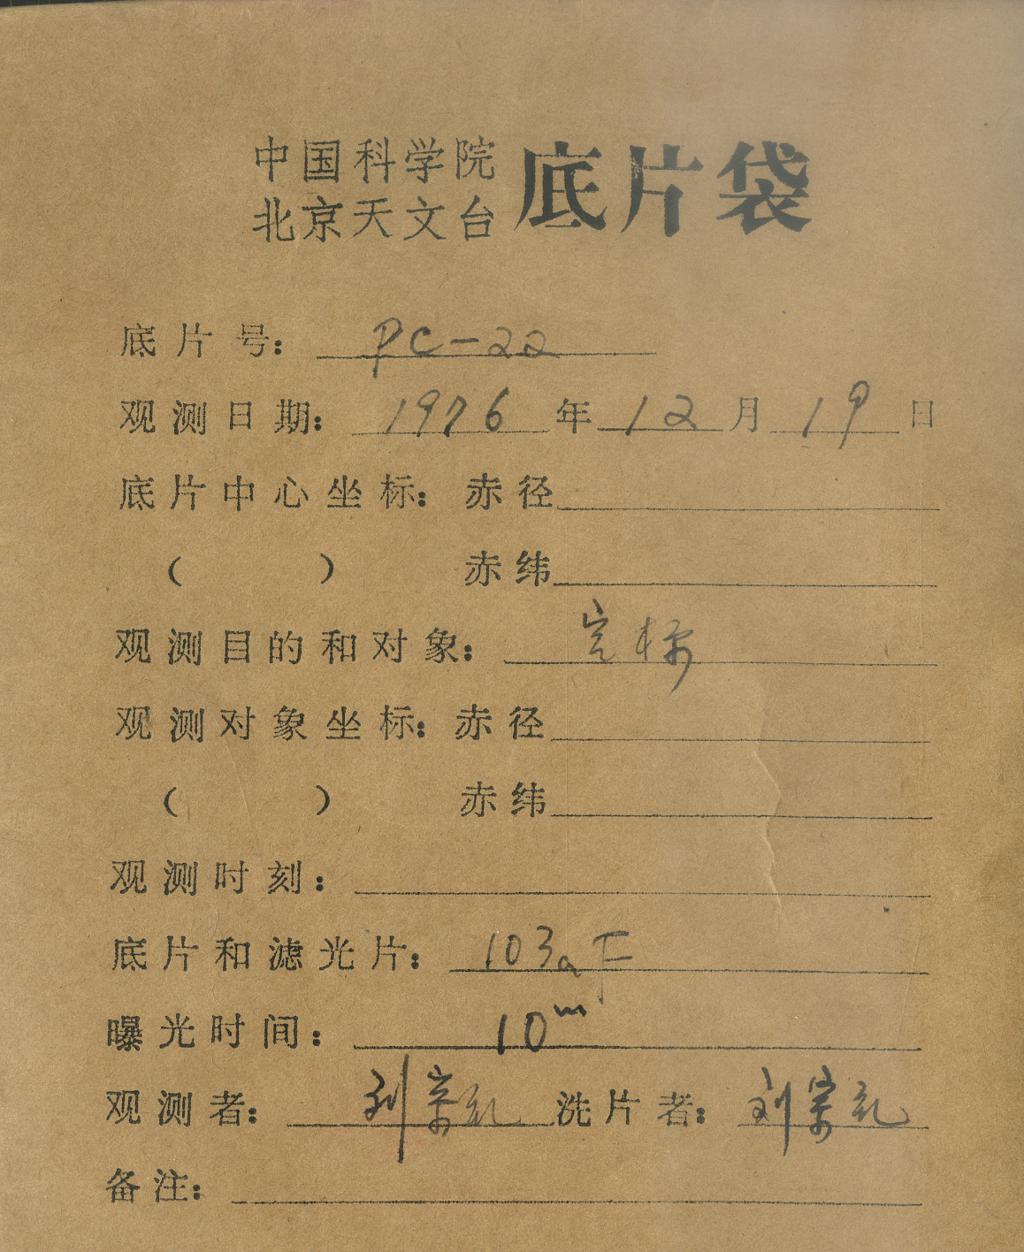 中国科学院
北京天文台 底片袋
底片号: PC-22
观测日期: 1976 年 12 月 19 日
底片中心坐标: 赤径
( ) 赤纬
观测目的和对象: 定标
观测对象坐标: 赤径
( ) 赤纬
观测时刻:
底片和滤光片: 103aF
曝光时间: 10ᵐ
观测者: 刘宗礼 洗片者: 刘宗礼
备注: